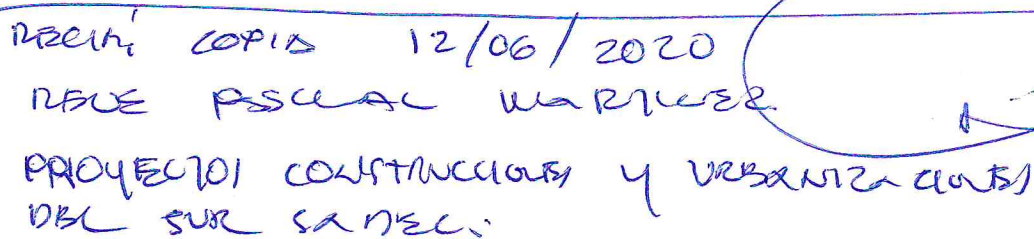 RECIBÍ COPIA 12/06/2020
RENE PASCUAL MARTINEZ
PROYECTOS CONSTRUCCIONES Y URBANIZACIONES
DEL SUR SA DE C.